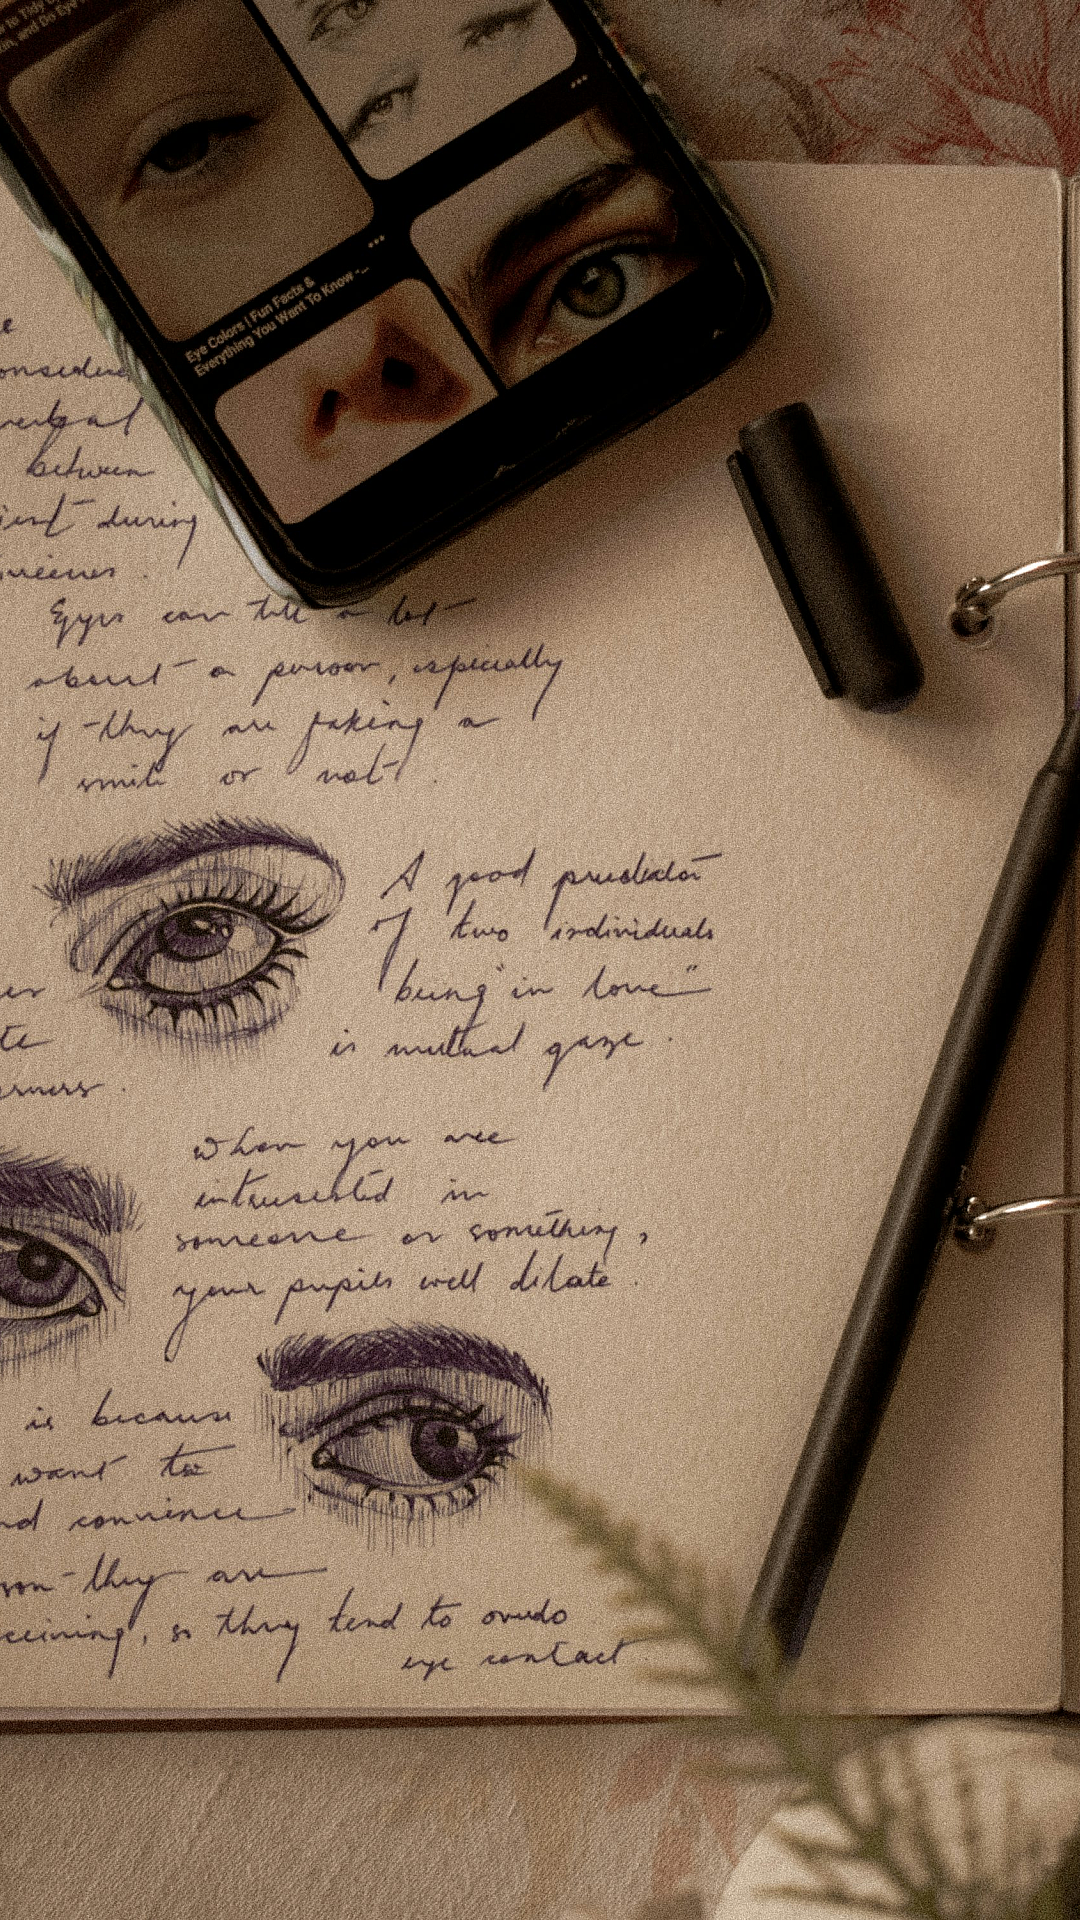 in, and Do Eye
Eye Colors | Fun Facts &
Everything You Want To Know -...
verbal
between
during
Eyes can tell a lot
about a person, especially
if they are faking a
smile or not.
A good predictor
of two individuals
being "in love"
is mutual gaze.
When you are
intrusested in
someone or something,
your pupils will dilate.
is because
want to
convience
they are
so they tend to
eye contact